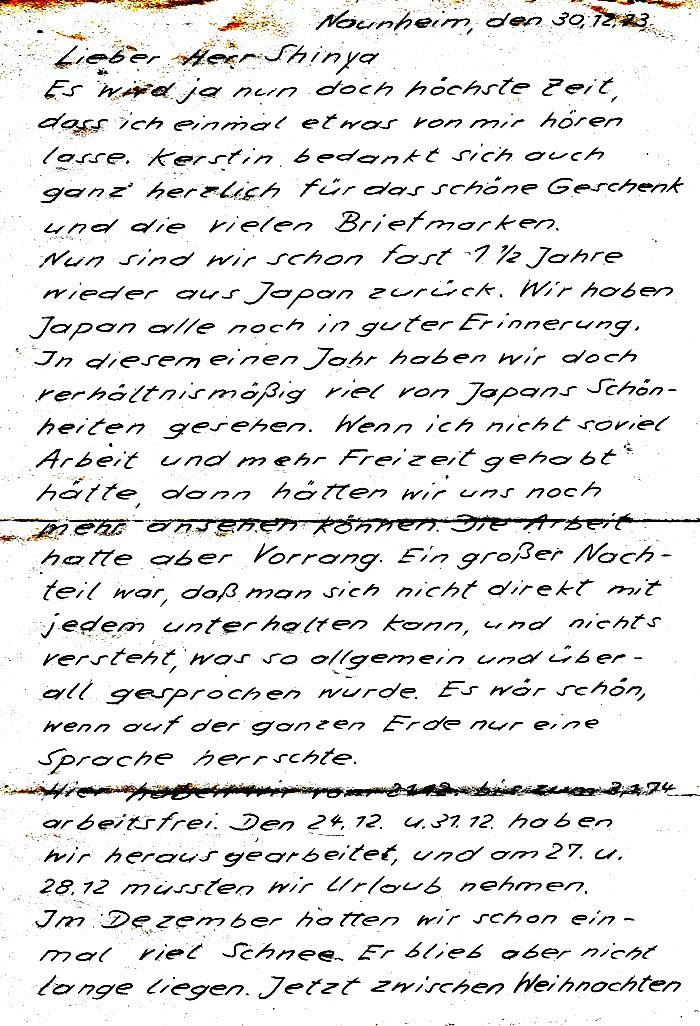 Naunheim, den 30.12.73
Lieber Herr Shinya
Es wird ja nun doch höchste Zeit,
dass ich einmal etwas von mir hören
lasse. Kerstin bedankt sich auch
ganz herzlich für das schöne Geschenk
und die vielen Briefmarken.
Nun sind wir schon fast 1 1/2 Jahre
wieder aus Japan zurück. Wir haben
Japan alle noch in guter Erinnerung.
In diesem einen Jahr haben wir doch
verhältnismäßig viel von Japans Schön-
heiten gesehen. Wenn ich nicht soviel
Arbeit und mehr Freizeit gehabt
hätte, dann hätten wir uns noch
mehr ansehen können. Die Arbeit
hatte aber Vorrang. Ein großer Nach-
teil war, daß man sich nicht direkt mit
jedem unterhalten kann, und nichts
versteht, was so allgemein und über-
all gesprochen wurde. Es wär schön,
wenn auf der ganzen Erde nur eine
Sprache herrschte.
Hier haben wir vom 21.12. bis zum 2.1.74
arbeitsfrei. Den 24.12. u. 31.12. haben
wir herausgearbeitet, und am 27. u.
28.12 mussten wir Urlaub nehmen.
Im Dezember hatten wir schon ein-
mal viel Schnee. Er blieb aber nicht
lange liegen. Jetzt zwischen Weihnachten